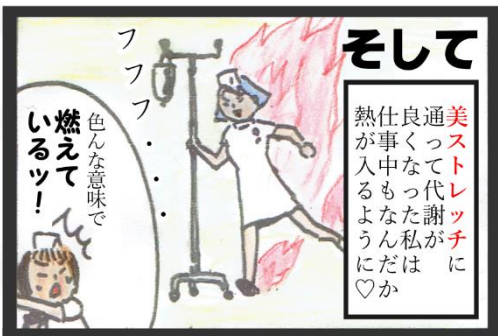 そして
美ストレッチに
通って代謝が
良くなった私は
仕事中もなんだか
熱が入るように♡
フフフ・・・
色んな意味で
燃えて
いるッ！